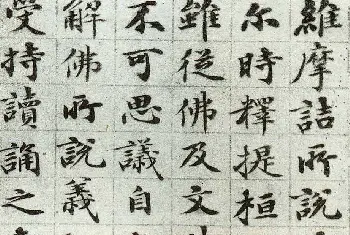 維摩詰所說
尔時釋提桓
雖從佛及文
不可思議自
解佛所說義
受持讀誦之